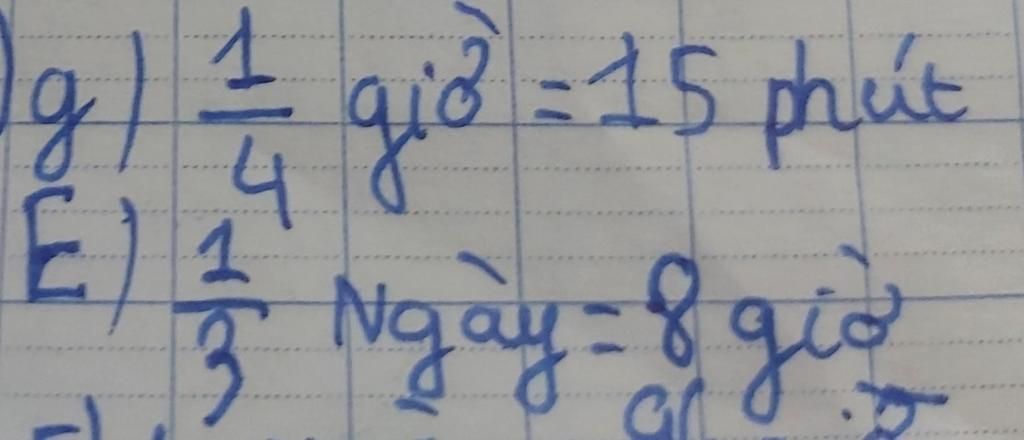 g) 1/4 giờ = 15 phút
E) 1/3 Ngày = 8 giờ